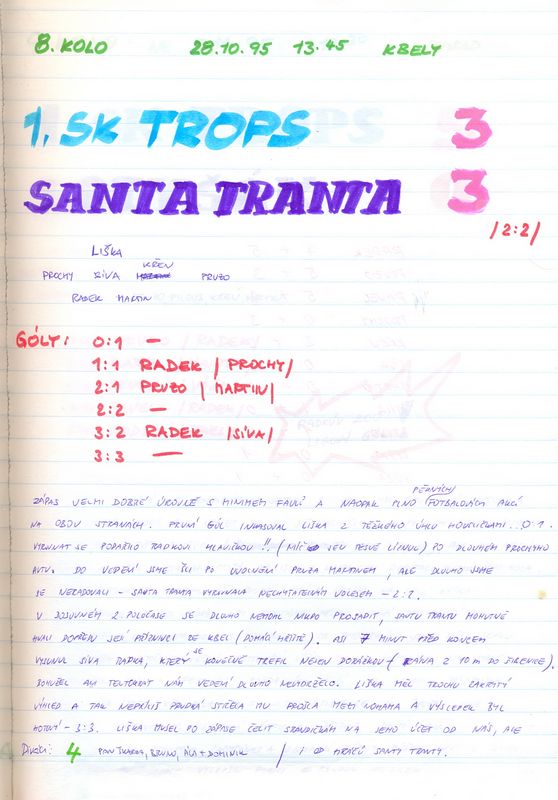 8. KOLO 28.10.95 13.45 KBELY
1. SK TROPS 3
SANTA TRANTA 3
/2:2/
LIŠKA
KŘEN
PROCHY SÍVA PRUZO
RADEK MARTIN
GÓLY: 0:1 —
1:1 RADEK /PROCHY/
2:1 PRUZO /MARTIN/
2:2 —
3:2 RADEK /SÍVA/
3:3 —
PĚKNÝCH
ZÁPAS VELMI DOBRÉ ÚROVNĚ S MINIMEM FAULŮ A NAOPAK PLNO FOTBALOVÝCH AKCÍ
NA OBOU STRANÁCH. PRVNÍ GÓL INKASOVAL LIŠKA Z TĚŽKÉHO ÚHLU HOUSLIČKAMI...0:1.
VYROVNAT SE PODAŘILO RADKOVI HLAVIČKOU!! (MÍČ JEN TĚSNĚ LÍZNUL) PO DLOUHÉM PROCHYHO
AUTU. DO VEDENÍ JSME ŠLI PO UVOLNĚNÍ PRUZA MARTINEM, ALE DLOUHO JSME
SE NERADOVALI - SANTA TRANTA VYROVNALA NECHYTATELNÝM VOLEJEM - 2:2.
V BOJOVNÉM 2. POLOČASE SE DLOUHO NEMOHL NIKDO PROSADIT, SANTU TRANTU MOHUTNĚ
HNALI DOPŘEDU JEJÍ PŘÍZNIVCI ZE KBEL (DOMÁCÍ HŘIŠTĚ). ASI 7 MINUT PŘED KONCEM
VYSUNUL SÍVA RADKA, KTERÝ SE KONEČNĚ TREFIL NEJEN DORÁŽKOU (RÁNA Z 10 M DO ŠIBENICE).
BOHUŽEL ANI TENTOKRÁT NÁM VEDENÍ DLOUHO NEVYDRŽELO. LIŠKA MĚL TROCHU ZAKRYTÝ
VÝHLED A TAK NEPŘÍLIŠ PRUDKÁ STŘELA MU PROŠLA MEZI NOHAMA A VÝSLEDEK BYL
HOTOVÝ - 3:3. LIŠKA MUSEL PO ZÁPASE ČELIT SRANDIČKÁM NA JEHO ÚČET OD NÁS, ALE
Diváci: 4 PAN ŠKARDA, BRUNO, ÁJA + DOMINIK / I OD HRÁČŮ SANTY TRANTY.